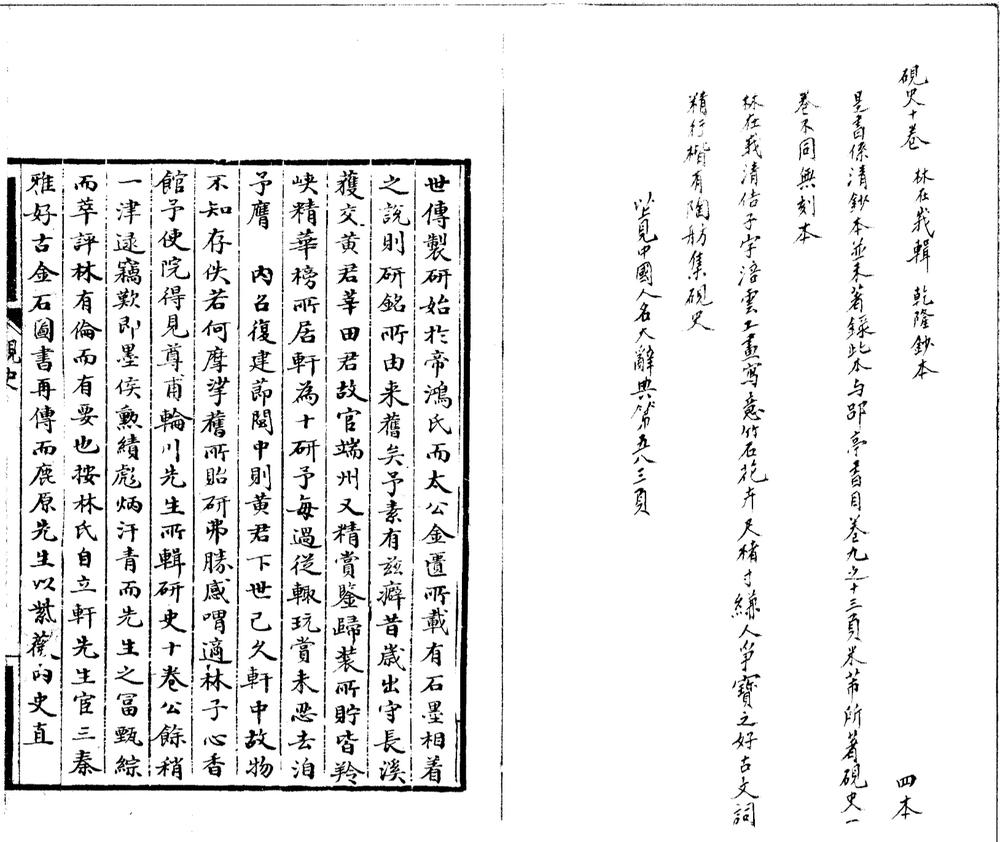 硯史十卷　林在峩輯　乾隆鈔本　四本
是書係清鈔本並未著錄此本与郘亭書目卷九之十三頁米芾所著硯史一
卷不同無刻本
林在峩清佶子字涪雲工畫寫意竹石花卉尺楮寸縑人爭寶之好古文詞
精行楷有陶舫集硯史
以上見中國人名大辭典第五八三頁
世傳製研始於帝鴻氏而太公金匱所載有石墨相着
之說則研銘所由来舊矣予素有兹癖昔歲出守長溪
獲交黄君莘田君故官端州又精賞鑒歸装所貯皆羚
峡精華榜所居軒為十研予每過從輙玩賞未忍去洎
予膺　内召復建節閩中則黄君下世已久軒中故物
不知存佚若何摩挲舊所貽研弗勝感喟適林子心香
館予使院得見尊甫輪川先生所輯研史十卷公餘稍
一津逮竊歎即墨侯勲績彪炳汗青而先生之冨甄綜
而萃評林有倫而有要也按林氏自立軒先生宦三秦
雅好古金石圖書再傳而鹿原先生以紫薇内史直
硯史